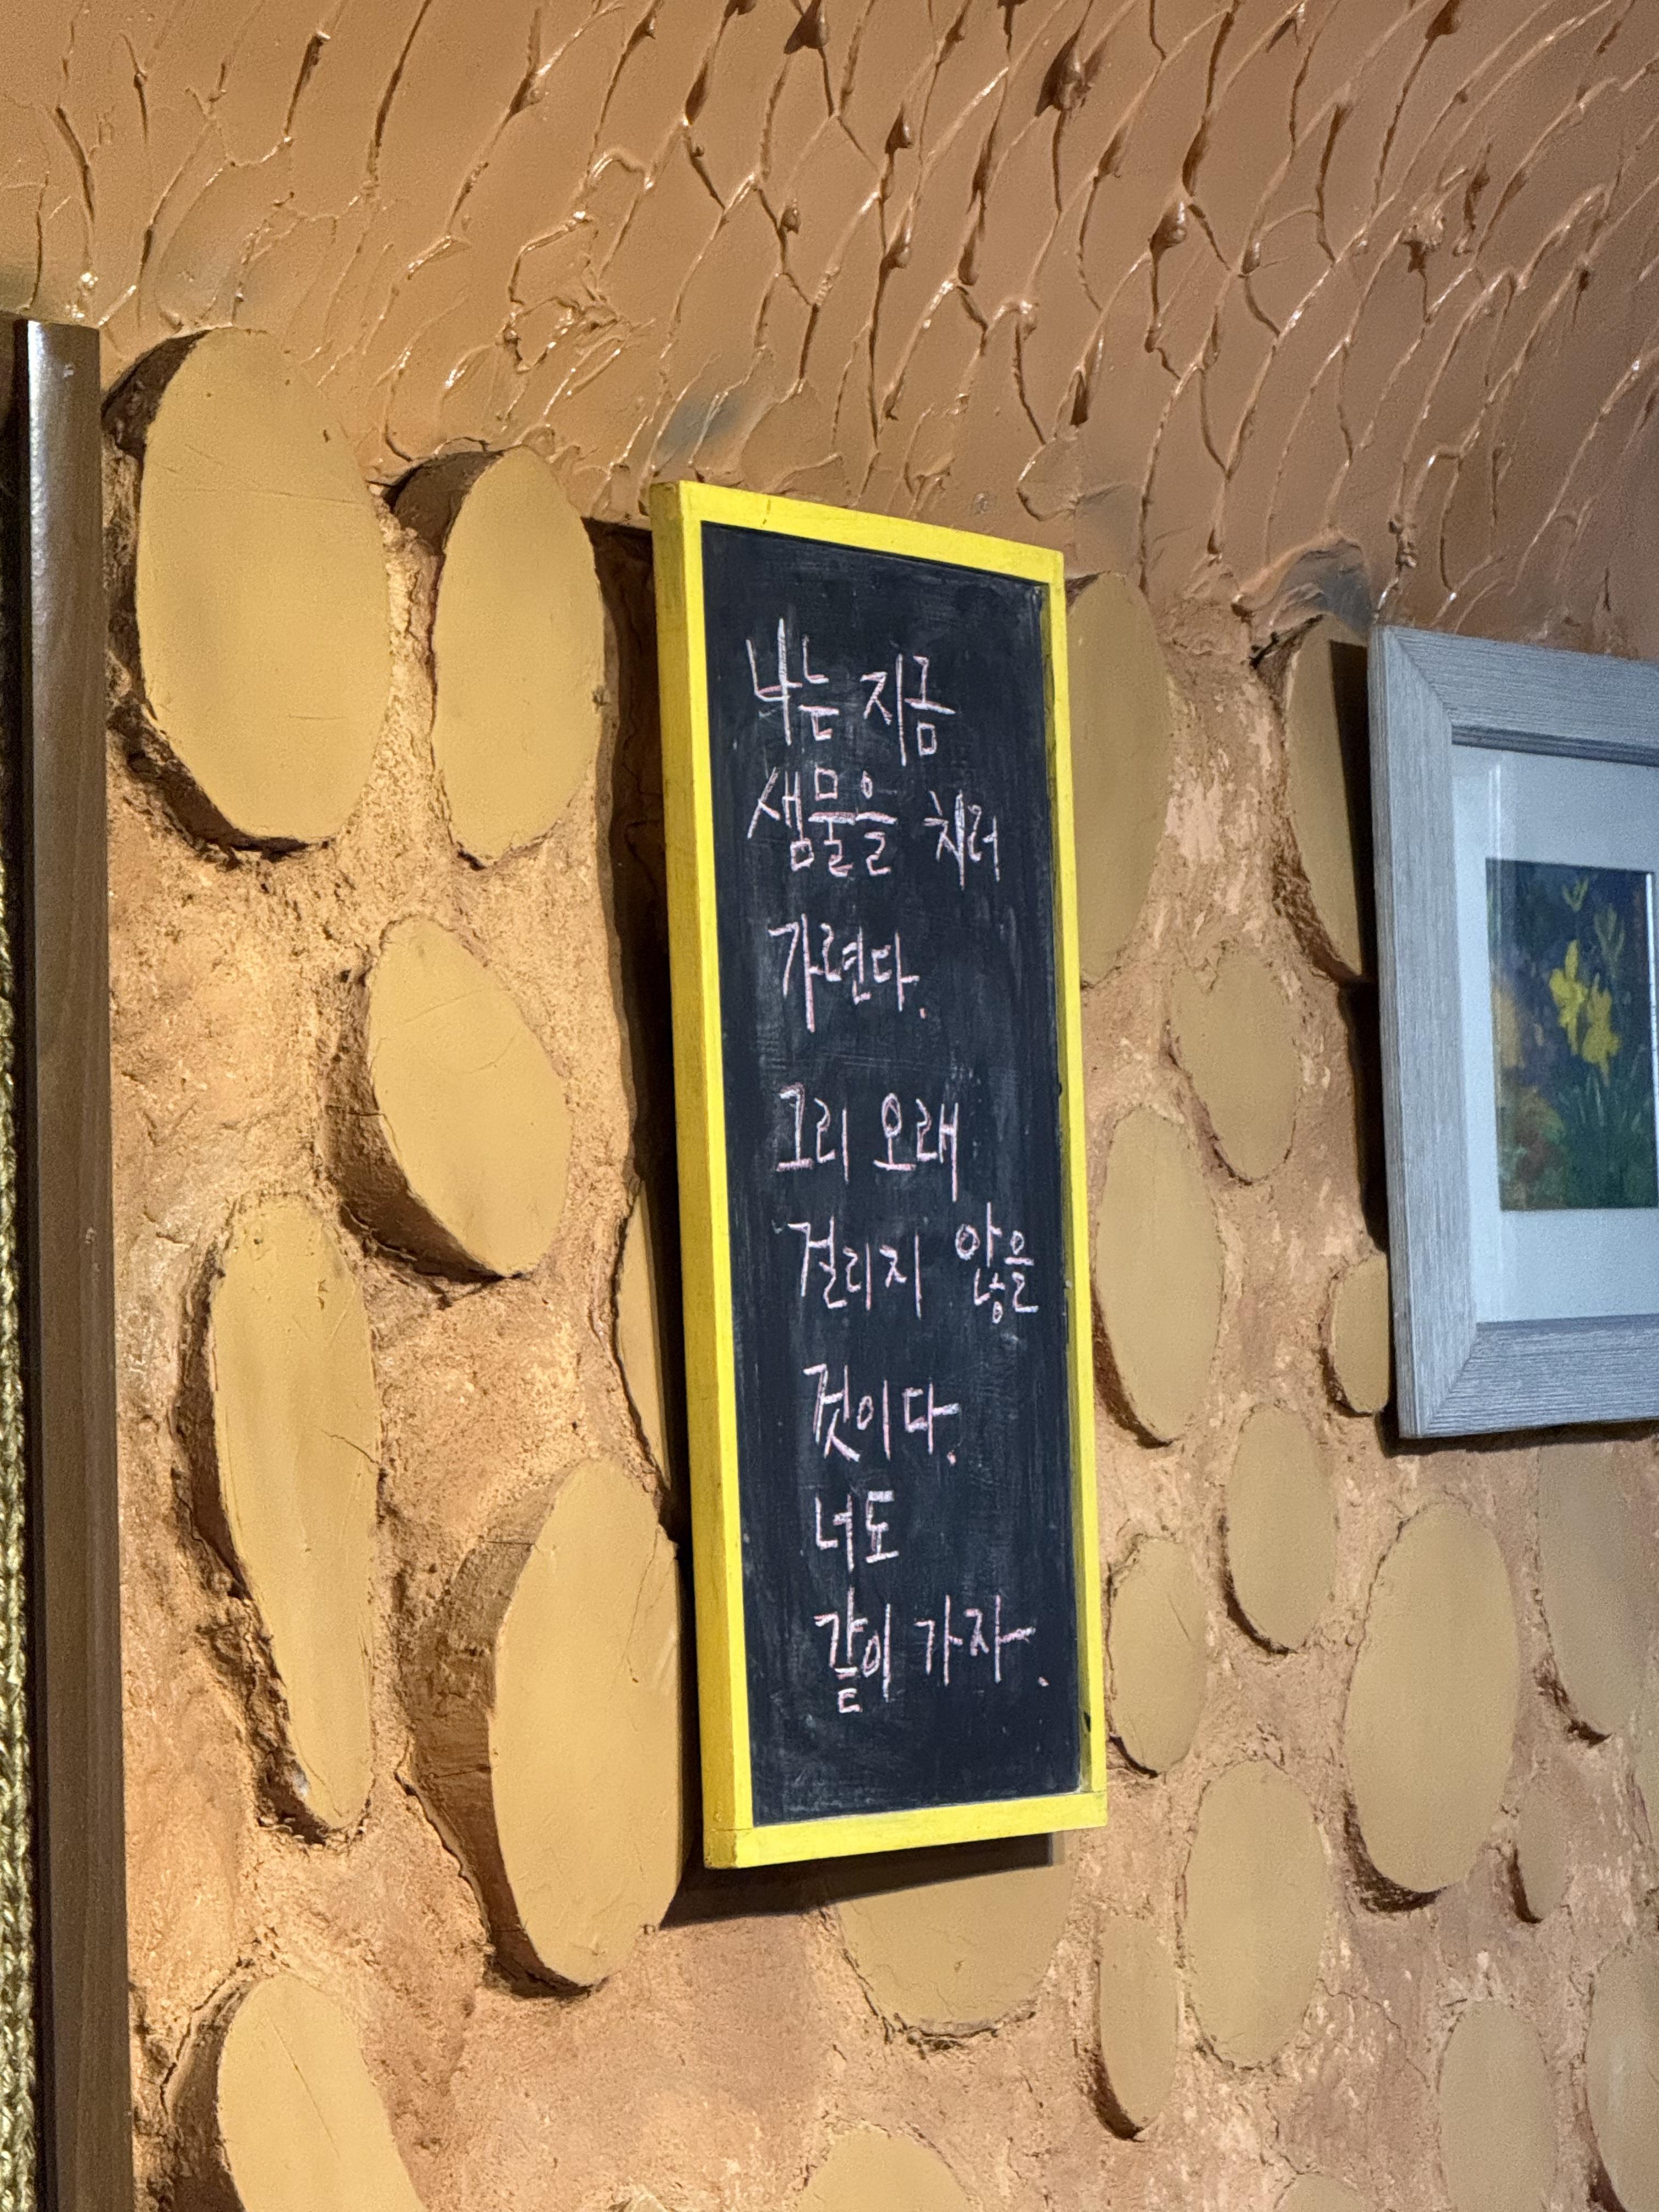 나는 지금
샘물을 치러
가련다.
그리 오래
걸리지 않을
것이다.
너도
같이 가자.